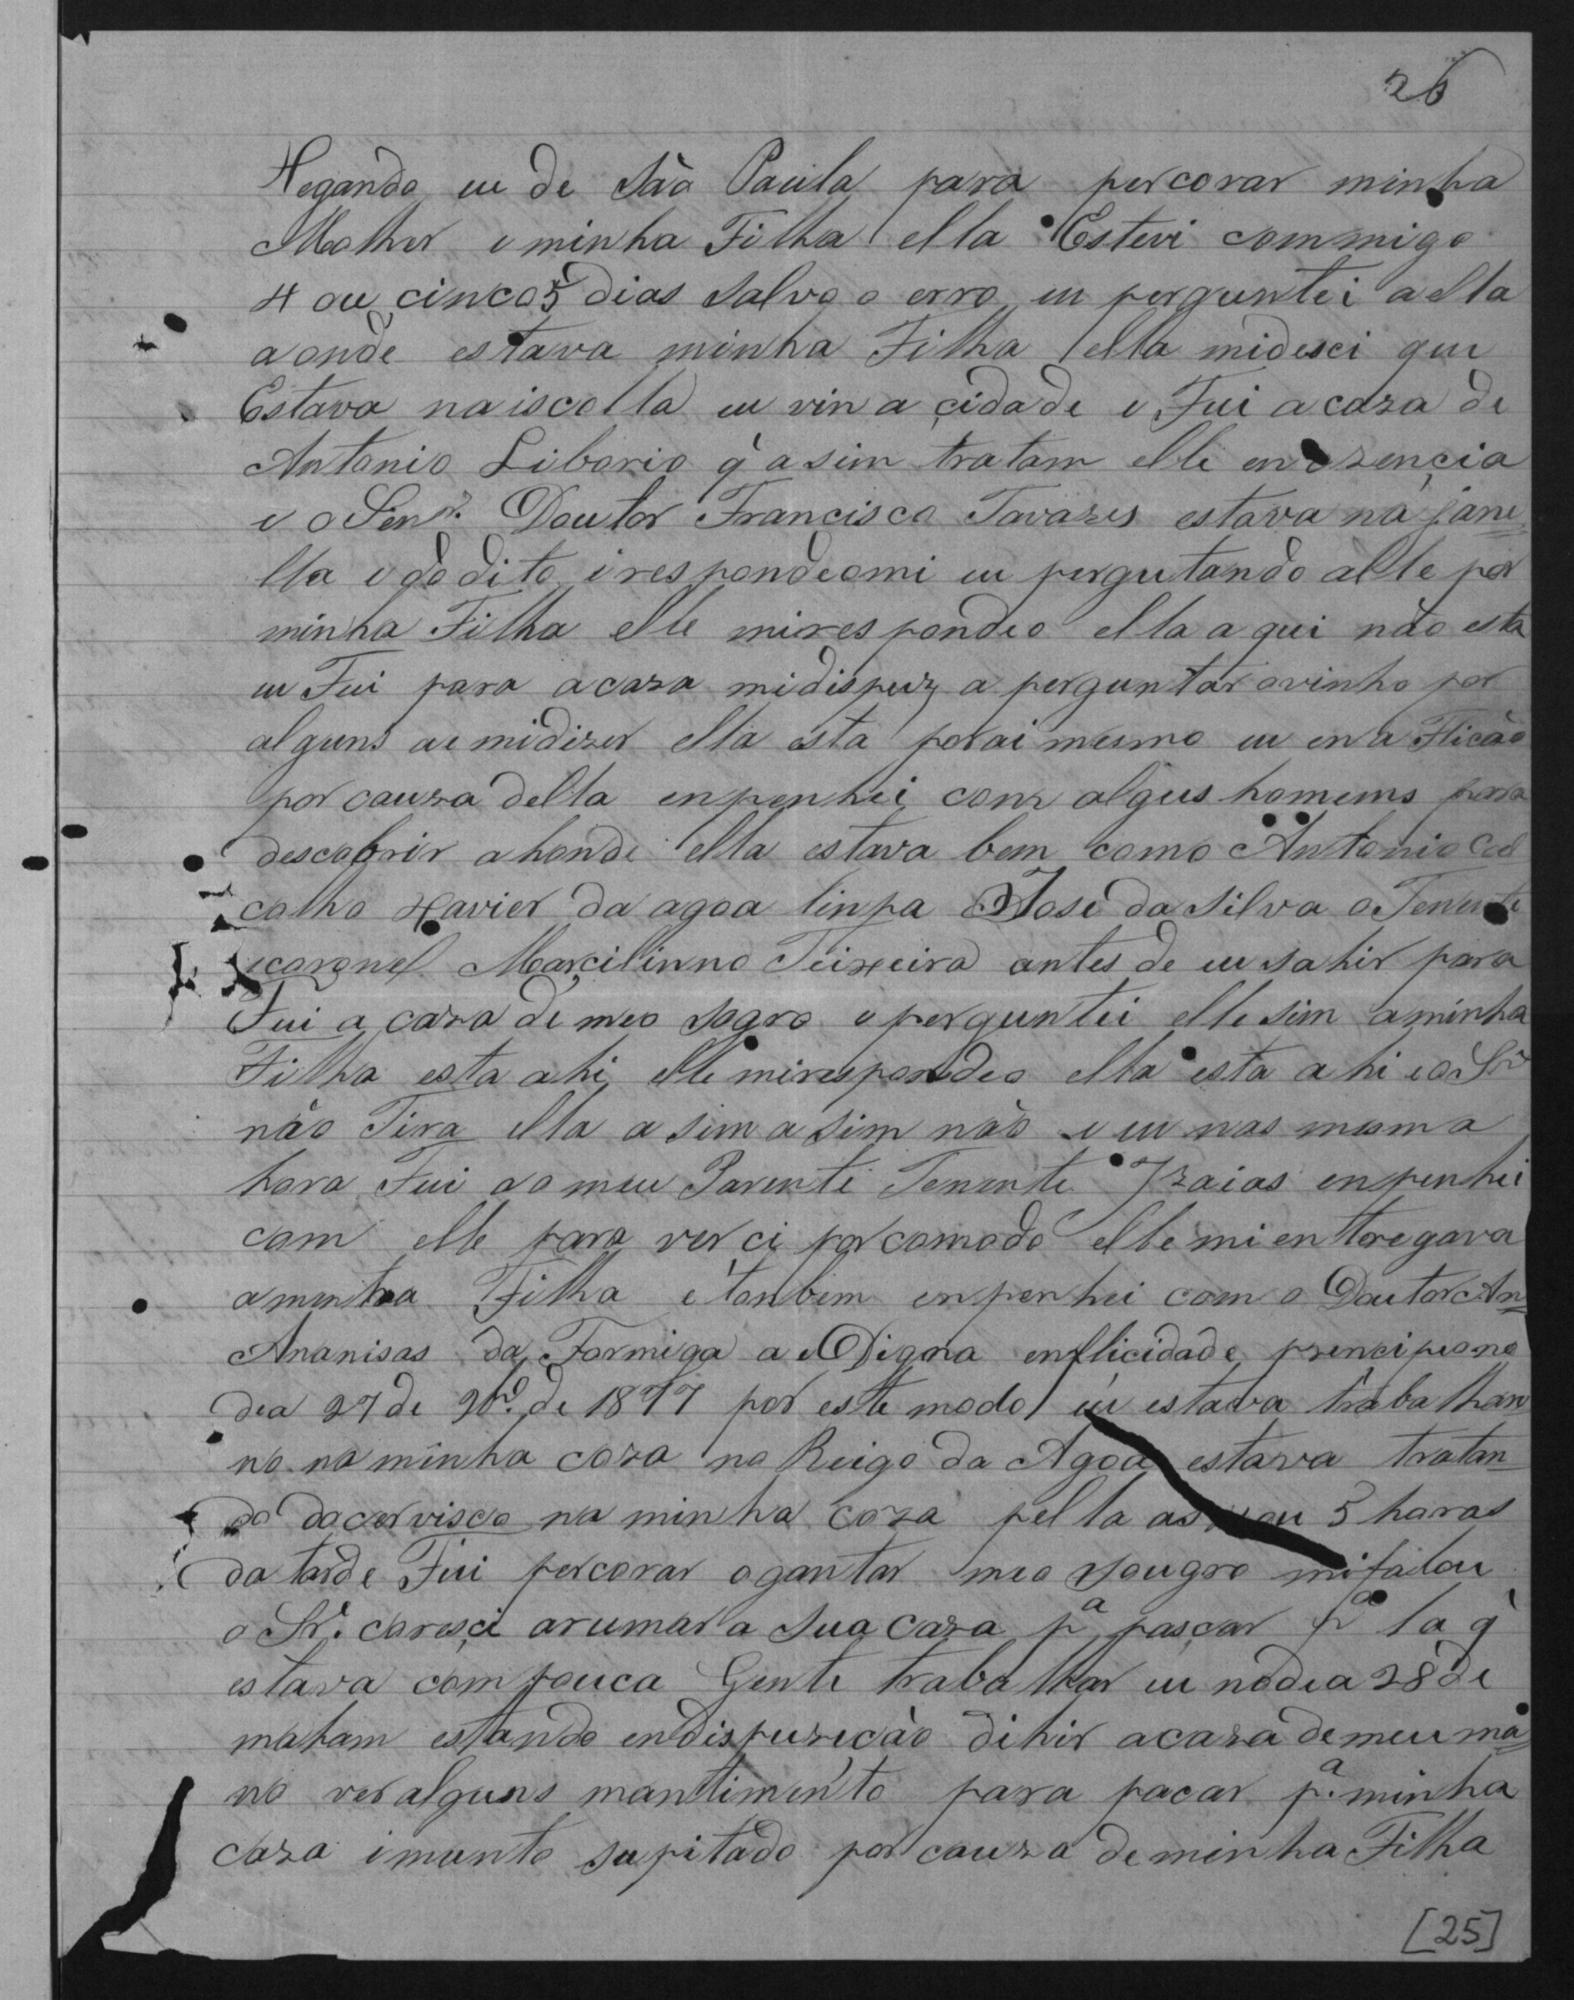 26
Hegando eu de São Paula para percorar minha
Molher e minha Filha ella Estevi commigo
4 ou cinco 5 dias salvo o erro eu perguntei a ella
aonde estava minha Filha ella midesci que
Estava naiscolla eu vin a cidade e Fui a caza de
Antonio Liborio q̀ asim tratam elle en ozencia
e o Senr. Doutor Francisco Tavares estava na jane
lla e do dito i respondeomi eu pergutando alle por
minha Filha elle mirespondeo ella aqui não esta
eu Fui para acaza midispuz a perguntar ovinho por
alguns ae midizer ella esta porai mesmo eu en a Flicão
por cauza della enpenhei com algus homems para
descobrir ahonde ella estava bem como Antonio Coel
colho Xavier da agoa linpa Jose da Silva o Tenente
coronel Marcilinno Teixeira antes de eu sahir para
Fui a caza de meo sogro e perguntei elle sim aminha
Filha esta ahi elle mirespondeo ella esta ahi e o Sr
não Tira ella asim asim não e eu nas mesma
hora Fui ao meu Parente Tenente Izaias enpenhei
com elle para ver ci por comodo elle mi entregava
aminha Filha e tanbem enpenhei com o Doutor An
Ananisas da Formiga a Digna enflicidade prencipeono
dea 27 de 9br.o de 1877 por este modo eu estava trabalhan
no na minha coza no Reigo da Agoa estava tratan
do docervisco na minha coza pella as ou 5 horas
da tarde Fui percorar ogantar meo sougro mifalou
o Sr. caresci arumar a sua caza pa pascar pa la q̀
estava com pouca Gente trabalhar eu nodea 28 de
maham estando endispuzicão dihir acaza de meu ma
no ver alguns mantimento para pacar pa. minha
caza imunto supitado por cauza de minha Filha
[25]